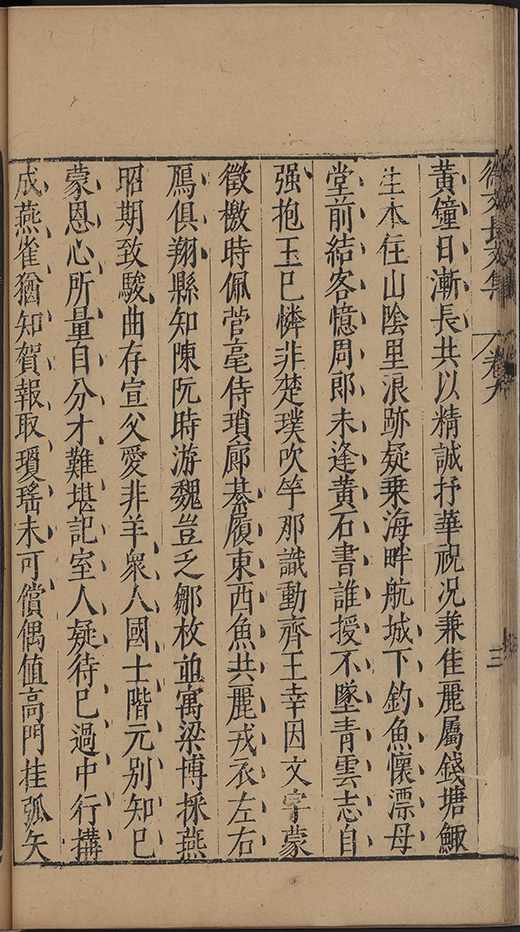 徐文長文集 卷六 三
黃鐘日漸長共以精誠抒華祝况兼佳麗屬錢塘鯫
生本住山陰里浪跡疑乗海畔航城下釣魚懷漂母
堂前結客憶周郎未逢黃石書誰授不墜青雲志自
强抱玉巳憐非楚璞吹竽那識動齊王幸因文字蒙
徵檄時佩菅毫侍瑣廊綦履東西魚共麗戎衣左右
鴈俱翔縣知陳阮時游魏豈乏鄒枚並寓梁博採燕
昭期致駿曲存宣父愛非羊衆人國士階元别知巳
蒙恩心所量自分才難堪記室人疑待巳過中行搆
成燕雀猶知賀報取瓊瑤未可償偶値高門挂弧矢